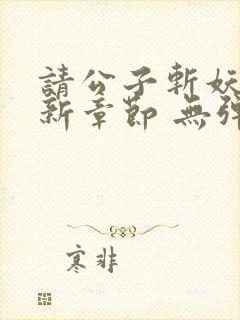 請公子斬妖
新章節 無彈
寒非